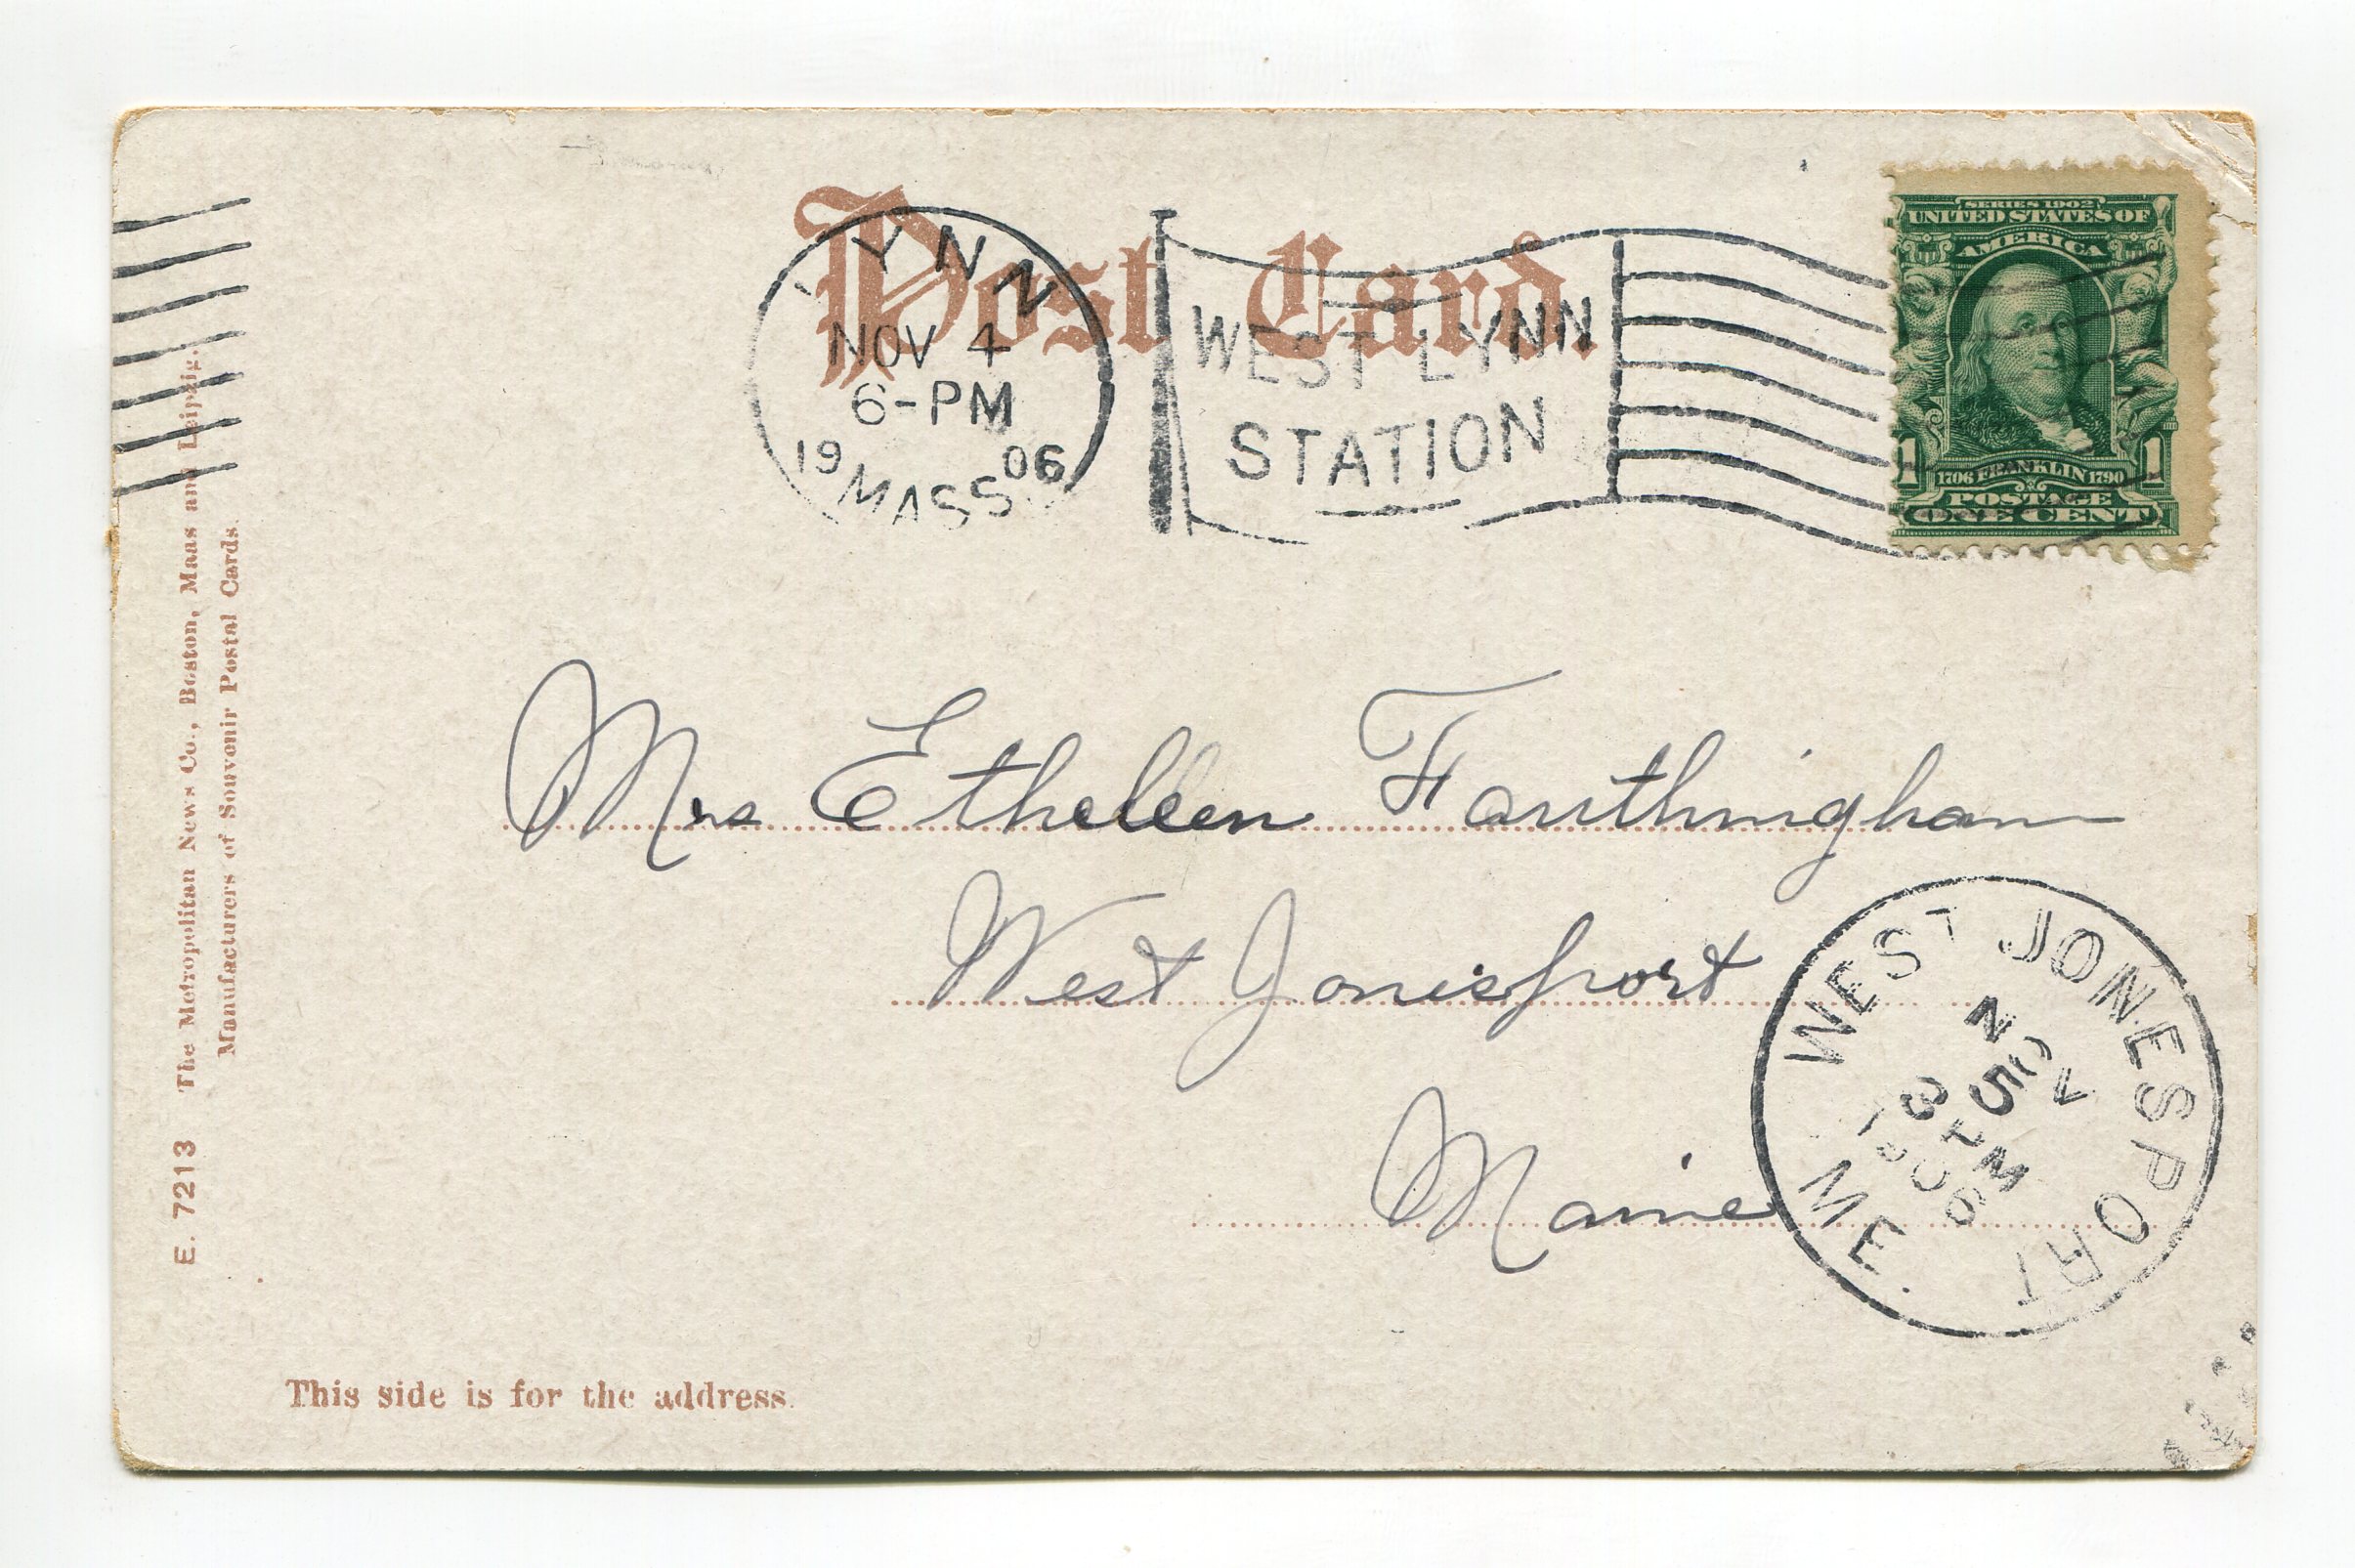 Post Card.
LYNN
NOV 4
6-PM
1906
MASS
WEST LYNN
STATION
SERIES 1902
UNITED STATES OF
AMERICA
1 1706 FRANKLIN 1790 1
POSTAGE
ONE CENT
E. 7213 The Metropolitan News Co., Boston, Mass and Leipzig.
Manufacturers of Souvenir Postal Cards.
Mrs Ethelleen Fauthingham
West Jonesport
Maine
WEST JONESPORT
NOV
5
3 PM
1906
ME.
This side is for the address.